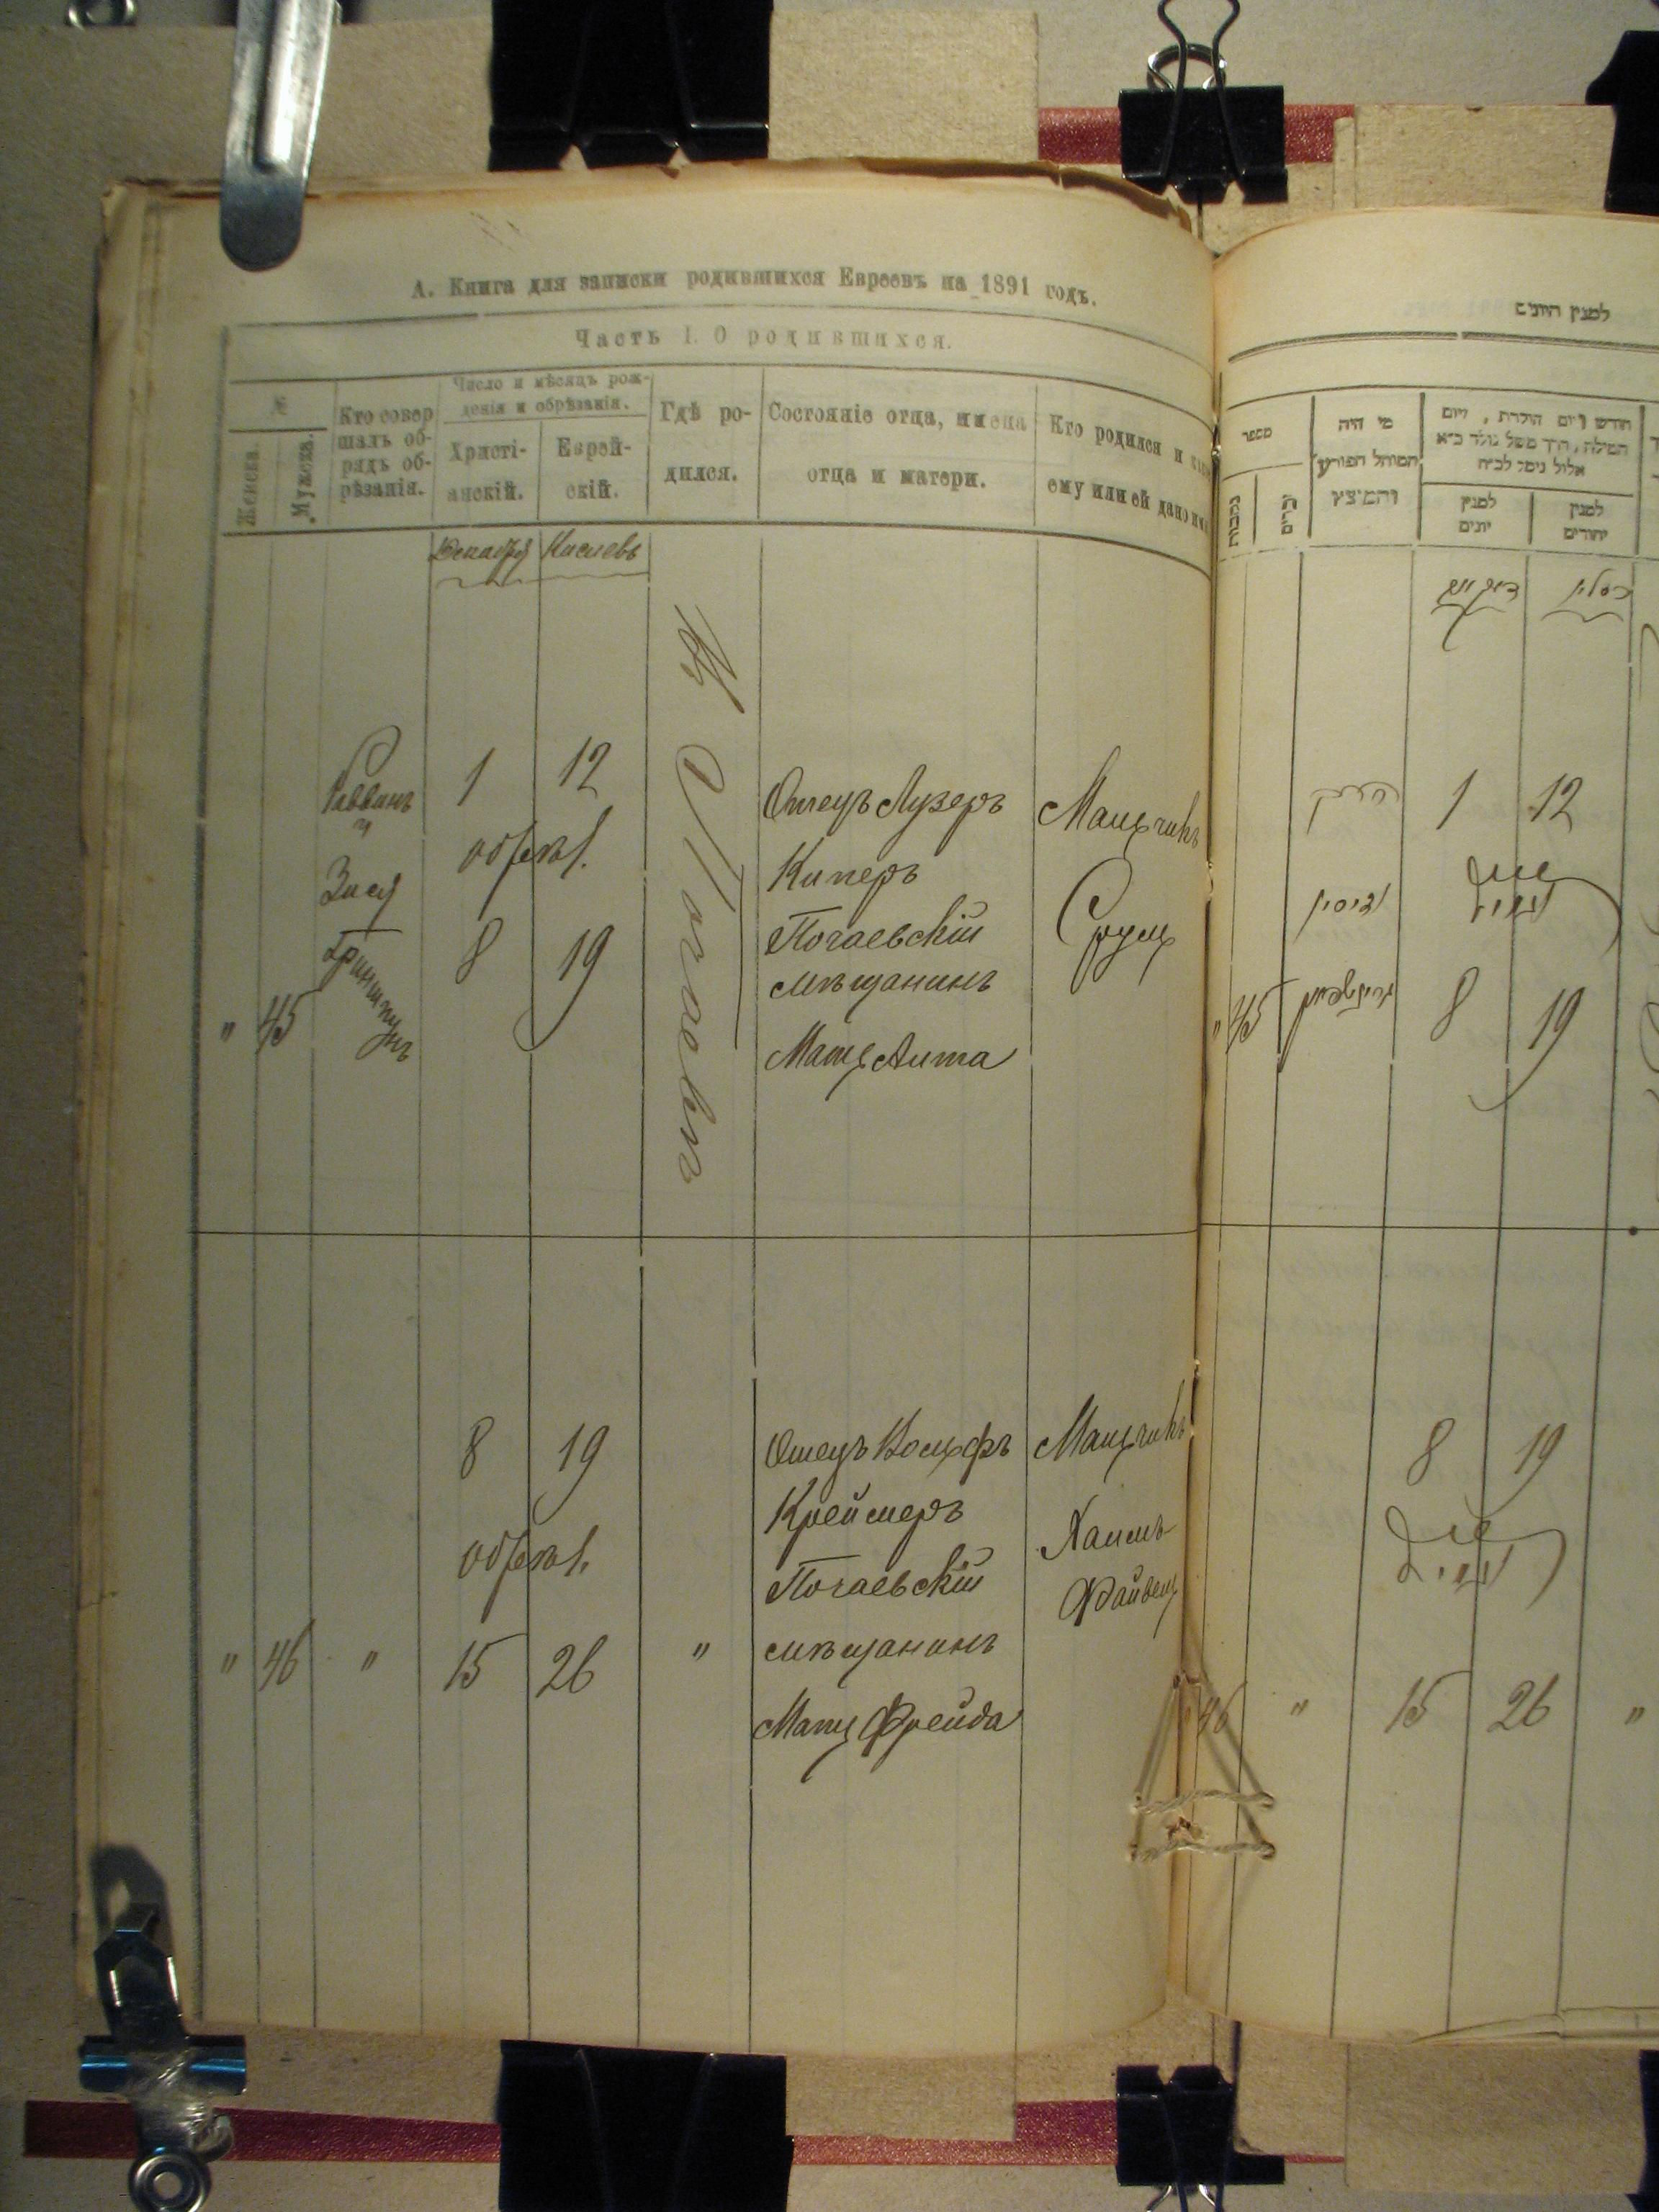 А. Книга для записки родившихся Евреевъ на 1891 годъ.
Часть I. О родившихся.
№
Женска.
Мужска.
Кто совер
шалъ об-
рядъ об-
рѣзанія.
Число и мѣсяцъ рож-
денія и обрѣзанія.
Христі-
анскій.
Еврей-
скій.
Гдѣ ро-
дился.
Состояніе отца, имена
отца и матери.
Кто родился и
ему или ей дано
Декабря
Кислевъ
М. Почаевъ
" 45
Раввинъ
и
Зися
Гринштунъ
1 12
обрѣзн.
8 19
Отецъ Лузеръ
Киперъ
Почаевскій
мѣщанинъ
Мать Анта
Мальчикъ
Сруль
" 46 " 
8 19
обрѣзн.
15 26
"
Отецъ Вольфъ
Креймеръ
Почаевскій
мѣщанинъ
Мать Фрейда
Мальчикъ
Хаимъ
Файвель
למנין היונים
מספר
נקבות
זכרים
מי היה
המוהל הפורע
והמוצץ
חודש ויום הולדת, ויום
המילה, הן משל נולד כ״א
אלול נימל לכ״ח
למנין
יונים
למנין
יהודים
כסליו
1 12
" 45
8 19
8 19
46 " 15 26 "